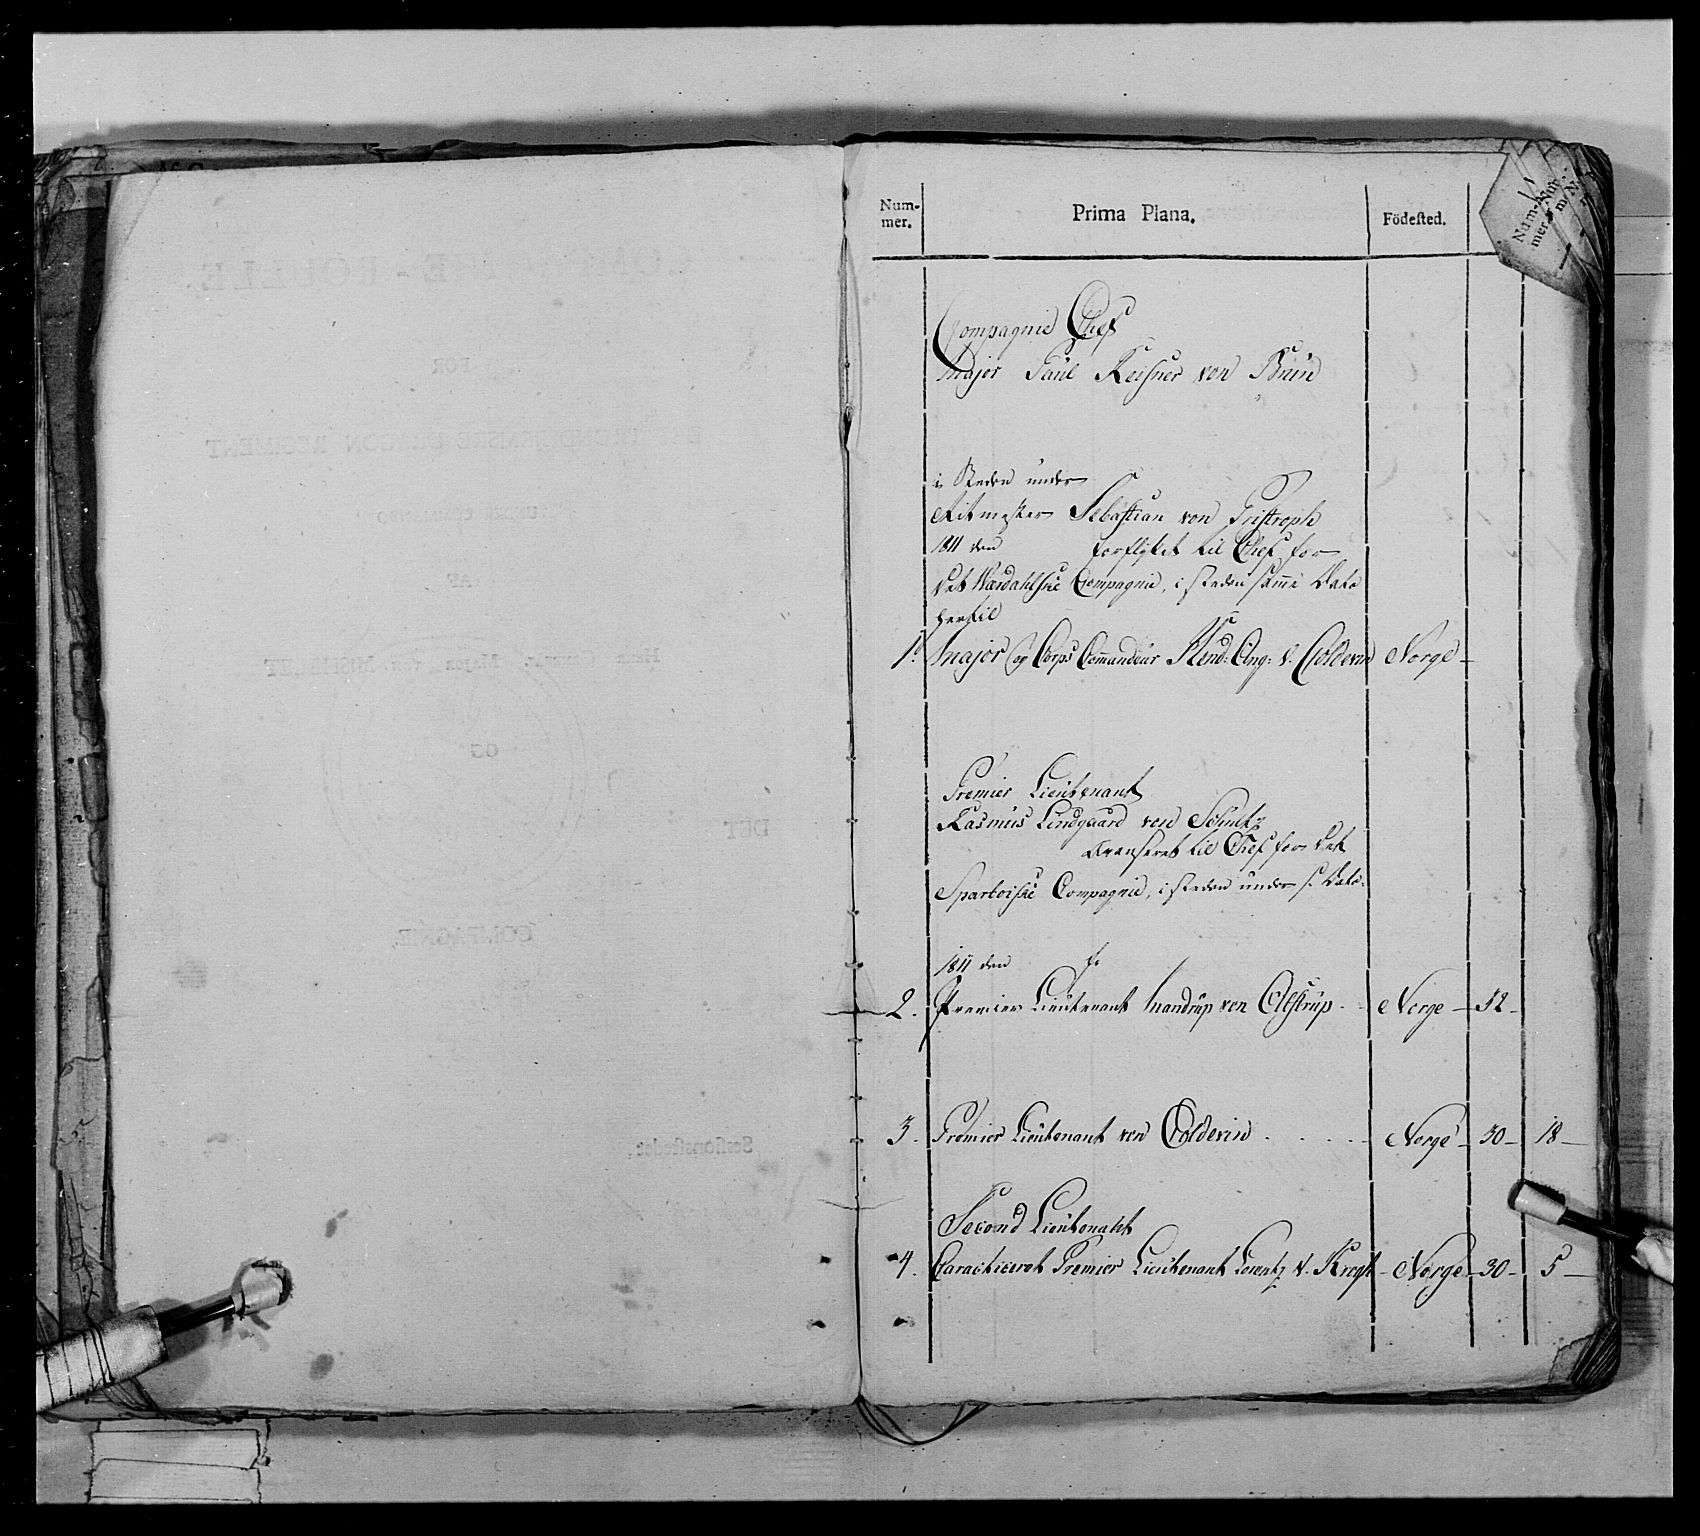 Num-
mer.
Prima Plana.
Födested.
Compagnie Chef
Major Paul Reisner von Bruin
i Steden under
Ritmester Sebastian von Tristroph
1811 den forflyttet til Chef for
det Wærdahlske Compagnie, i steden samme Dato
hertil
1. Major og Corps Commandeur Hend: Ang: v. Coldevin Norge
Premier Lieutenant
Rasmus Lindgaard von Schultz
avanseret til Chef for det
Sparboiske Compagnie, i steden under s. Dato
1811 den
2. Premier Lieutenant Mandrup von Olstrup Norge 32
3. Premier Lieutenant von Coldevin Norge 30 18
Second Lieutenant
4. Caracticeret Premier Lieutenant Lorentz v. Krogh Norge 30 5